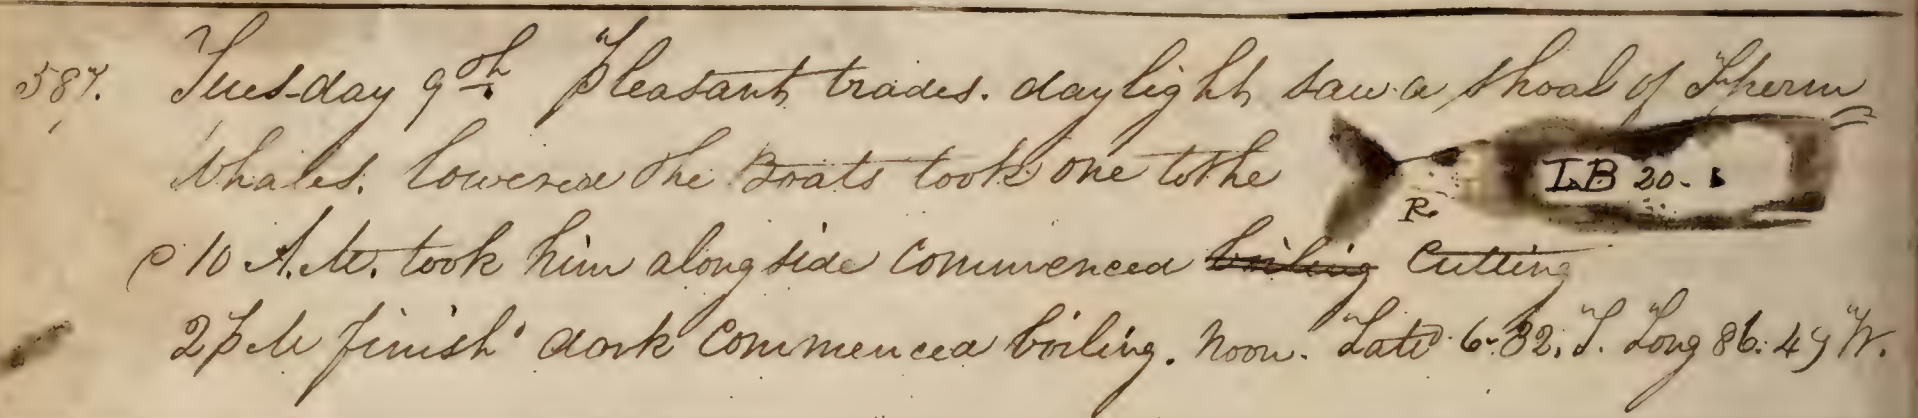 587. Tuesday 9th Pleasant trades. daylight saw a shoal of Sperm
Whales. lowered the Boats took one to the
LB 20.
R.
@ 10 A.M. took him alongside commenced boiling Cutting
2 P M finish' dark commenced boiling. Noon. Latd 6.32. S. Long 86.49 W.